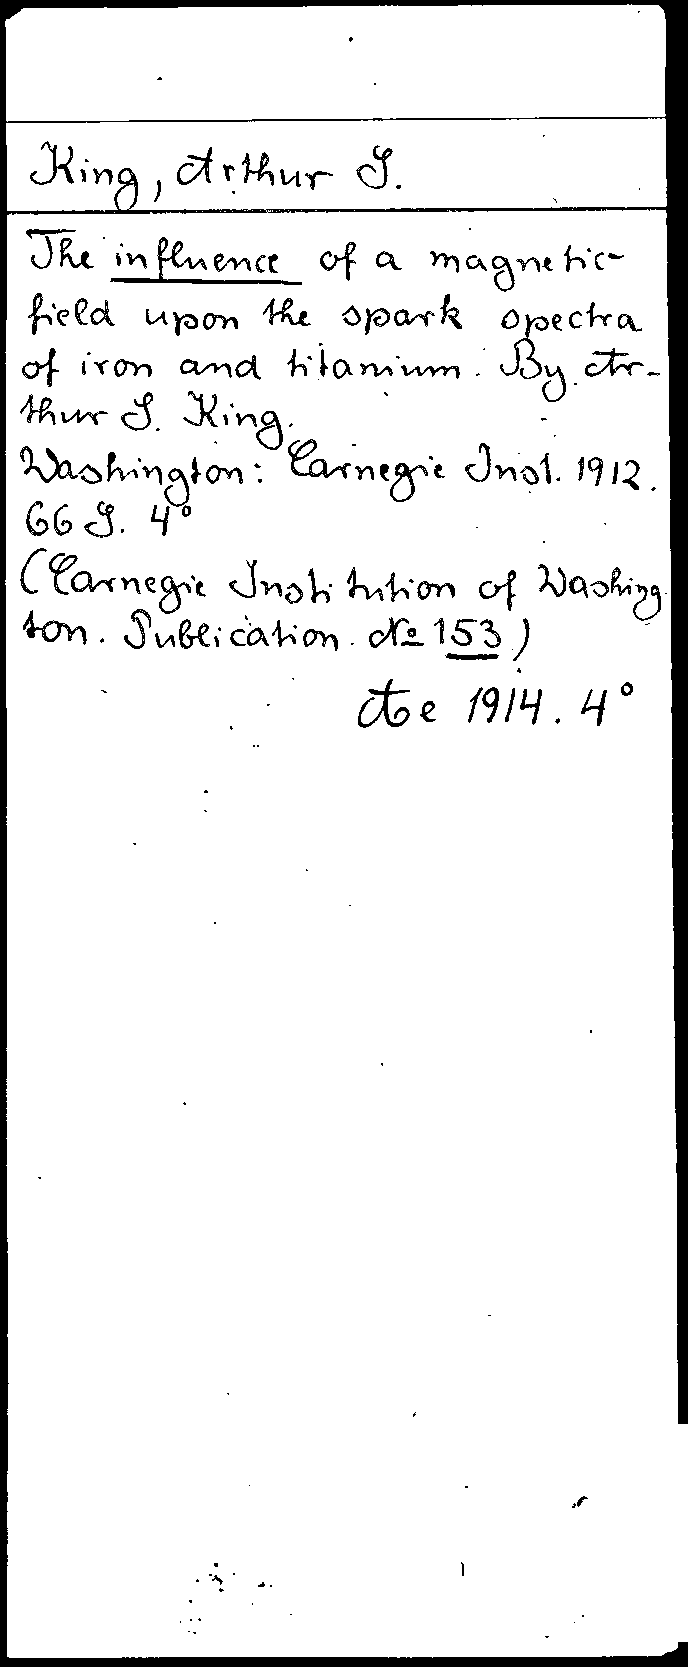 King, Arthur S.
The influence of a magnetic-
field upon the spark spectra
of iron and titanium. By Ar-
thur S. King.
Washington: Carnegie Inst. 1912.
66 S. 4°
(Carnegie Institution of Washing
ton. Publication. № 153)
Ae 1914. 4°